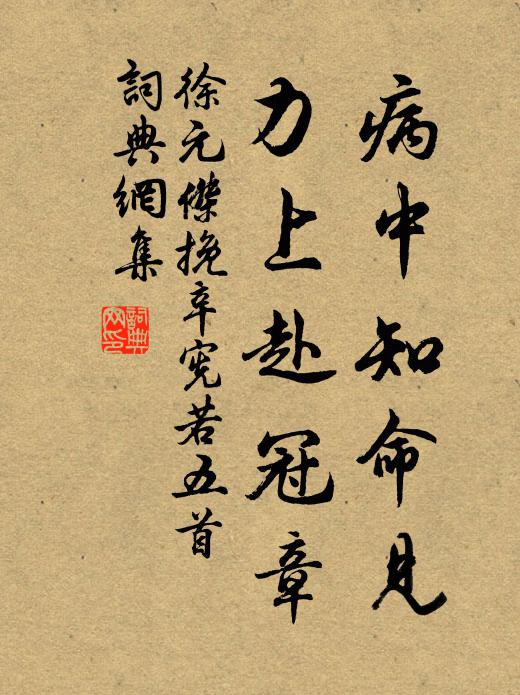 病中知命見
力上赴冠章
徐元傑挽辛宪若五首
詞典網集
詞典網印